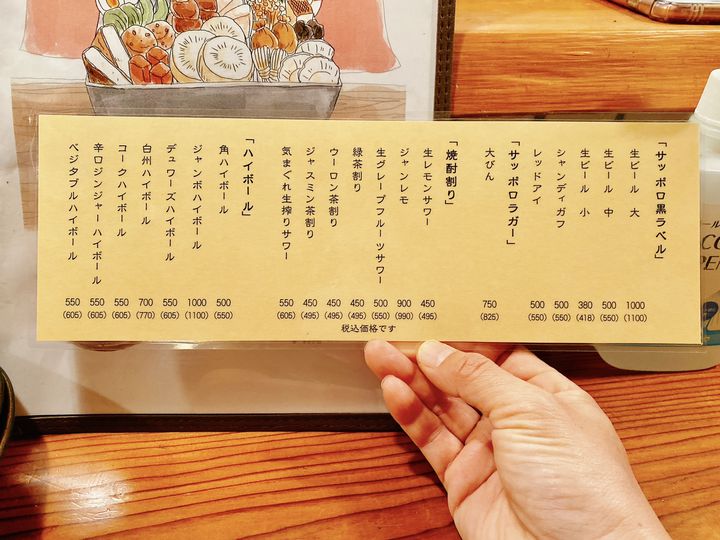 「サッポロ黒ラベル」
生ビール 大 1000 (1100)
生ビール 中 500 (550)
生ビール 小 380 (418)
シャンディガフ 500 (550)
レッドアイ 500 (550)
「サッポロラガー」
大びん 750 (825)
「焼酎割り」
生レモンサワー 450 (495)
ジャンレモ 900 (990)
生グレープフルーツサワー 500 (550)
緑茶割り 450 (495)
ウーロン茶割り 450 (495)
ジャスミン茶割り 450 (495)
気まぐれ生搾りサワー 550 (605)
「ハイボール」
角ハイボール 500 (550)
ジャンボハイボール 1000 (1100)
デュワーズハイボール 550 (605)
白州ハイボール 700 (770)
コークハイボール 550 (605)
辛口ジンジャーハイボール 550 (605)
ベジタブルハイボール 550 (605)
税込価格です